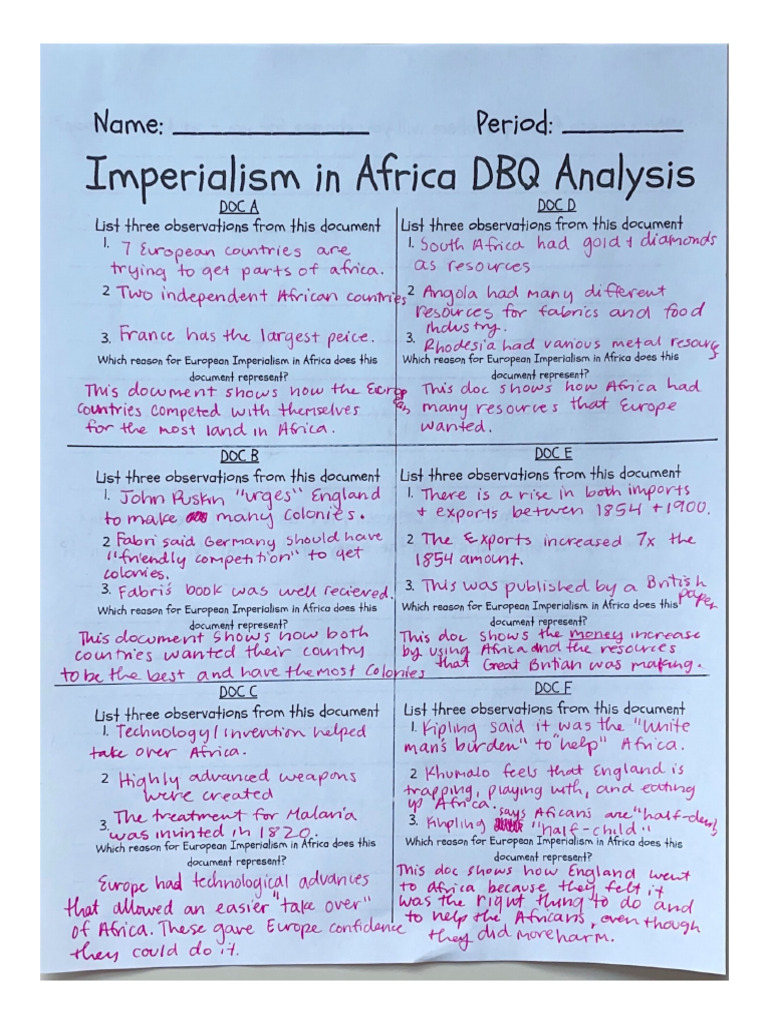 Name: ____________ Period: ________
Imperialism in Africa DBQ Analysis
DOC A
List three observations from this document
1. 7 European countries are
trying to get parts of africa.
2 Two independent African countries
3. France has the largest peice.
Which reason for European Imperialism in Africa does this
document represent?
This document shows how the European
countries competed with themselves
for the most land in Africa.
DOC B
List three observations from this document
1. John Ruskin "urges" England
to make many colonies.
2 Fabri said Germany should have
"friendly competition" to get
colonies.
3. Fabri's book was well recieved.
Which reason for European Imperialism in Africa does this
document represent?
This document shows how both
countries wanted their country
to be the best and have the most Colonies
DOC C
List three observations from this document
1. Technology/invention helped
take over Africa.
2 Highly advanced weapons
were created
3. The treatment for Malaria
was invinted in 1820.
Which reason for European Imperialism in Africa does this
document represent?
Europe had technological advances
that allowed an easier "take over"
of Africa. These gave Europe confidence
they could do it.
DOC D
List three observations from this document
1. South Africa had gold + diamonds
as resources
2 Angola had many different
resources for fabrics and food
industry.
3. Rhodesia had various metal resourcs
Which reason for European Imperialism in Africa does this
document represent?
This doc shows how Africa had
many resources that Europe
wanted.
DOC E
List three observations from this document
1. There is a rise in both imports
+ exports betwen 1854 + 1900.
2 The Exports increased 7x the
1854 amount.
3. This was published by a British
paper
Which reason for European Imperialism in Africa does this
document represent?
This doc shows the money increase
by using Africa and the resources
that Great Britian was making.
DOC F
List three observations from this document
1. Kipling said it was the "White
man's burden" to "help" Africa.
2 Khumalo feels that England is
trapping, playing with, and eating
up "Africa".
3. Kinpling says Aficans are "half-devil
"half-child"
Which reason for European Imperialism in Africa does this
document represent?
This doc shows how England went
to Africa because they felt it
was the right thing to do and
to help the Africans, even though
they did more harm.